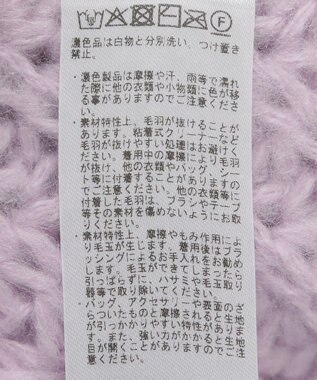 濃色品は白物と分別洗い、つけ置き
禁止。
・濃色製品は摩擦や汗、雨等で濡れ
た際に他の衣類や小物類に色が移
る事がありますのでご注意くださ
い。
・素材特性上、毛羽が抜けることが
あります。粘着式クリーナーなどで
毛羽が抜けやすい処理はお避けく
ださい。着用中の摩擦により毛羽
が抜け、他の衣類やバッグ、シー
ト等に付着することがありますの
でご注意ください。他の衣類等に
付着した毛羽は、ブラシやテープ
等その素材を傷めないようにお取
りください。
・素材特性上、摩擦やもみ作用によ
り毛玉が生じます。着用後はブラ
ッシングによるお手入れをお勧め
します。毛玉ができてしまったら
引っぱらずに、ハサミや毛玉取り
器等で取り除いてください。
・バッグ、アクセサリーや表面のざ
らついたものと摩擦されると生地
が引っかかりやすい特性がありま
す。また、強い力がかかると生地
目が開くことがありますのでご注
意ください。